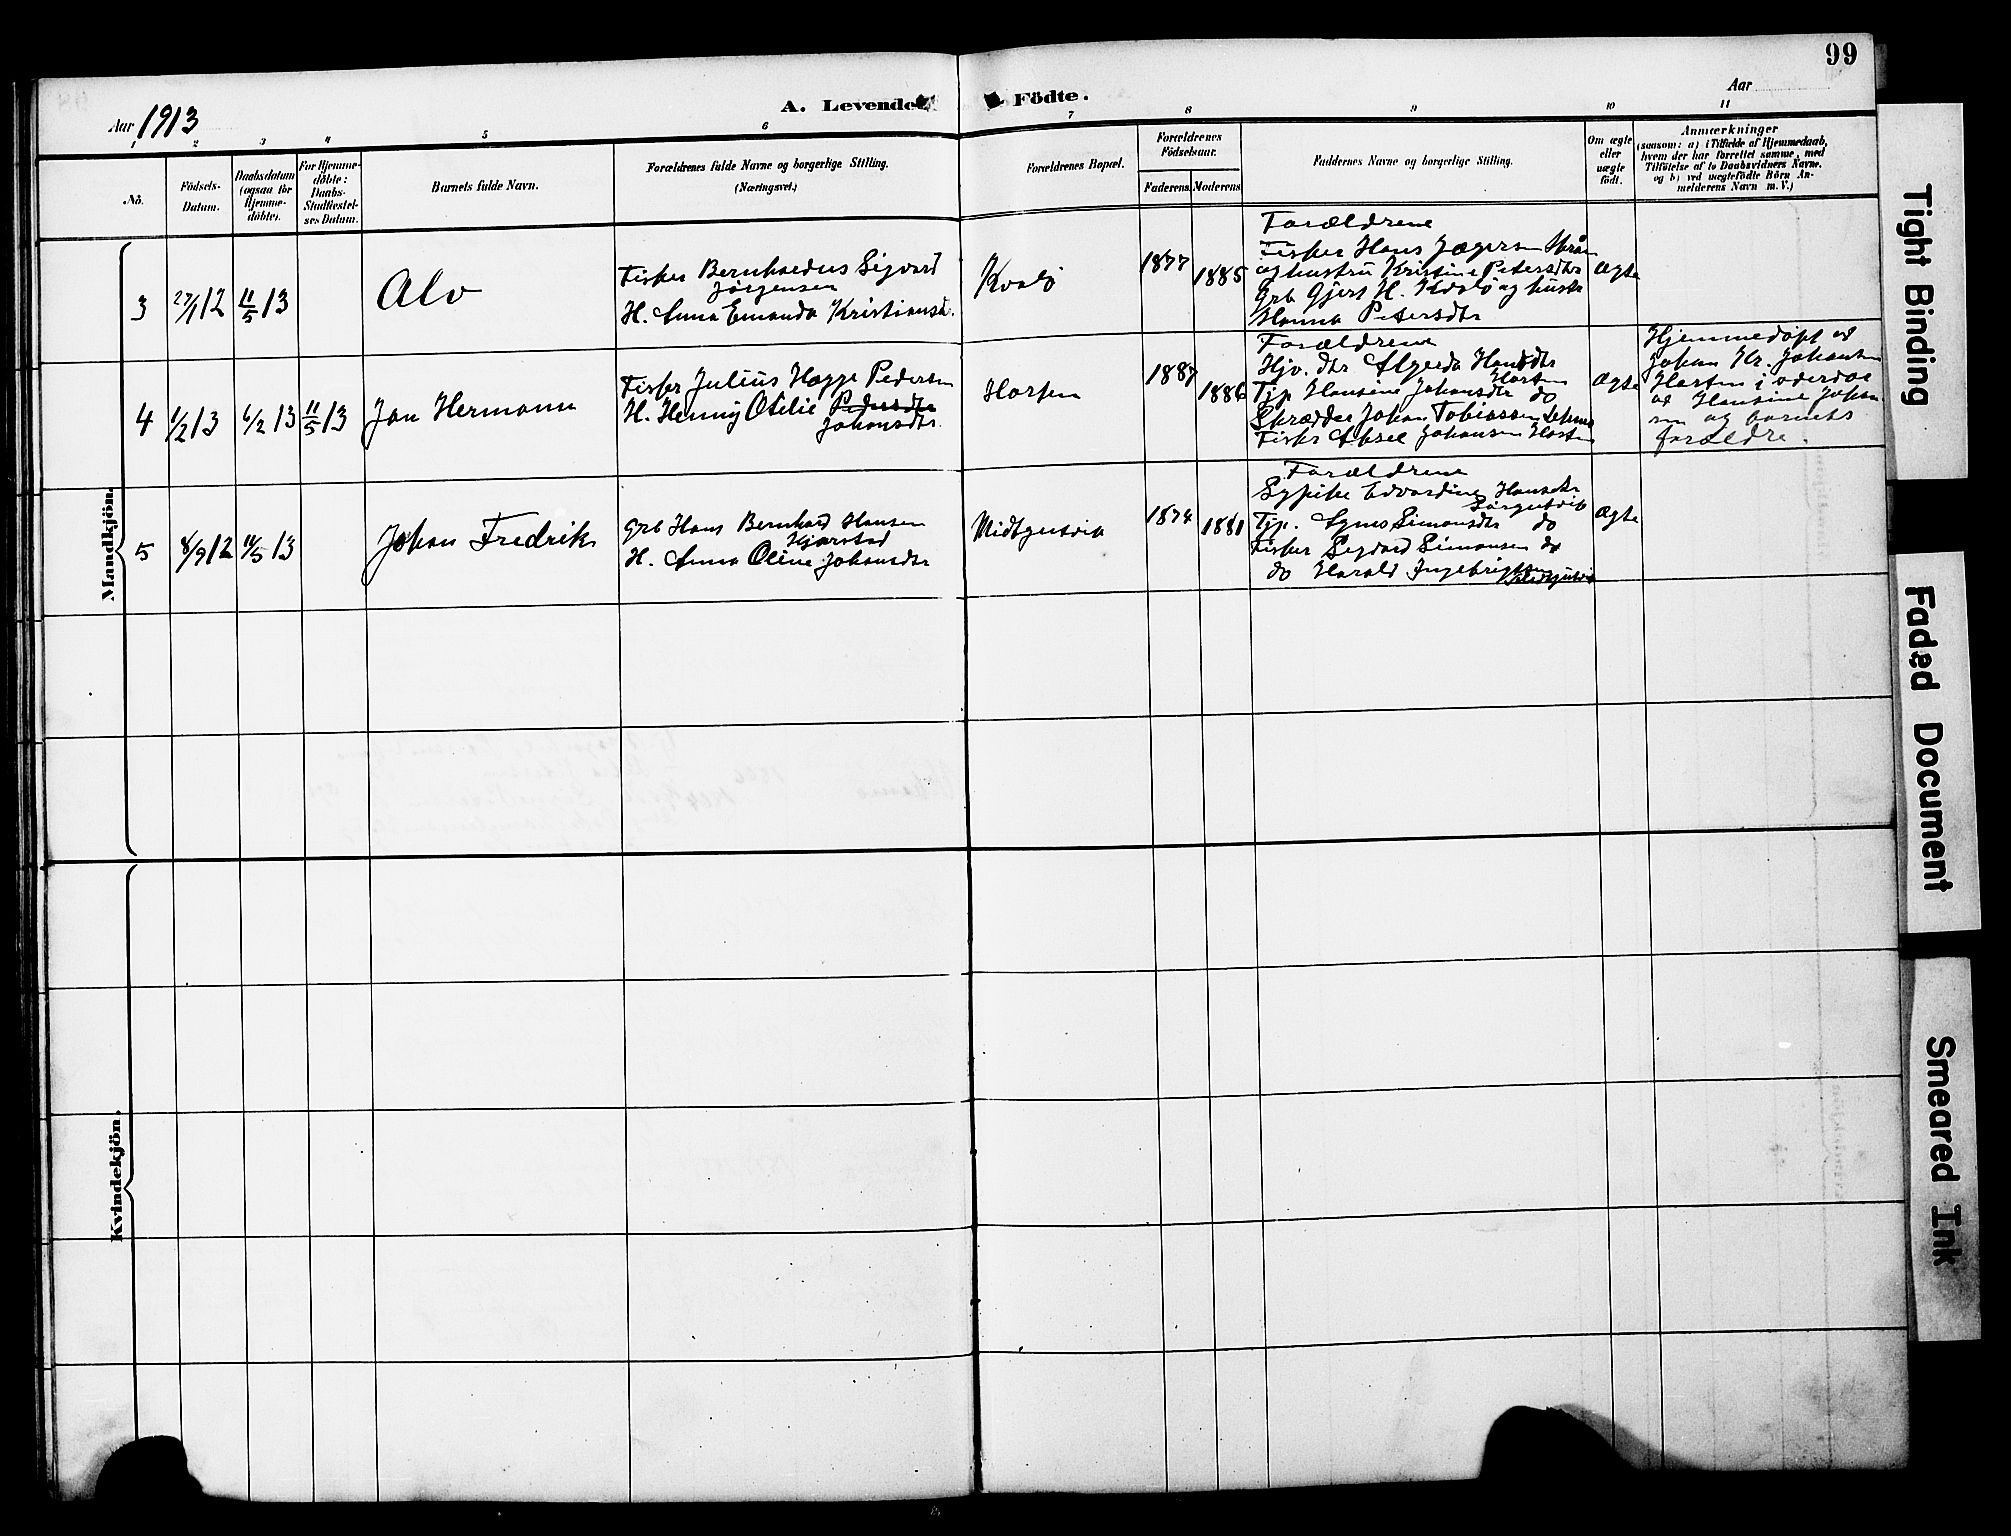 99
Aar 1913
A. Levende Födte.
Aar
1 2 3 4 5 6 7 8 9 10 11
No.
Födsels-
Datum.
Daabsdatum
(ogsaa for
Hjemme-
døbte).
For Hjemme-
døbte:
Daabs-
Stadfæstel-
ses Datum.
Barnets fulde Navn.
Forældrenes fulde Navne og borgerlige Stilling.
(Næringsvei.)
Forældrenes Bopæl.
Forældrenes
Födselsaar.
Faderens. Moderens.
Faddernes Navne og borgerlige Stilling.
Om ægte
eller
uægte
födt.
Anmærkninger
(saasom: a) i Tilfælde af Hjemmedaab,
hvem der har forrettet samme, med
Tilföielse af to Daabsvidners Navne.
og b) ved uægtefödte Börn An-
melderens Navn m. V.)
Mandkjön.
3
27/1 12
11/5 13
Alv
Fisker Bernhardus Sigvard
Jørgensen
H. Anna Emanda Kristiansd.
Kvalø
1877
1885
Forældrene
Fisker Hans Jægersen
og hustru Kristine Petersdtr
Grb Gjert H. Kvalø og hustr
Hanna Petersdtr
Ægte
4
1/2 13
6/2 13
11/5 13
Jan Hermann
Fisker Julius Hagge Pedersen
H. Henny Otelie Pedersdtr
Johansdtr.
Horsen
1887
1886
Forældrene
Hjv. dtr Algerda Hansdtr
Horsen
Tjp Hansine Johansdtr do
Skrædder Johan Tobiassen
Fisker Aksel Johansen Horsen
Ægte
Hjemmedøpt av
Johan Kr. Johansen
Horsen i overvær
av Hansine Johan
sen og barnets
forældre.
5
8/9 12
11/5 13
Johan Fredrik
Grb Hans Bernhard Hansen
Kjærstad
H. Anna Oline Johansdtr
Midtgutvik
1874
1881
Forældrene
Sypike Edvardine Hansdtr
Sørgutvik
Tjp. Agnes Simonsdtr do
Fisker Sigvard Simonsen do
do Harald Ingebrigtsen
Midtgutvik
Ægte
Kvindekjön.
Tight Binding
Faded Document
Smeared Ink